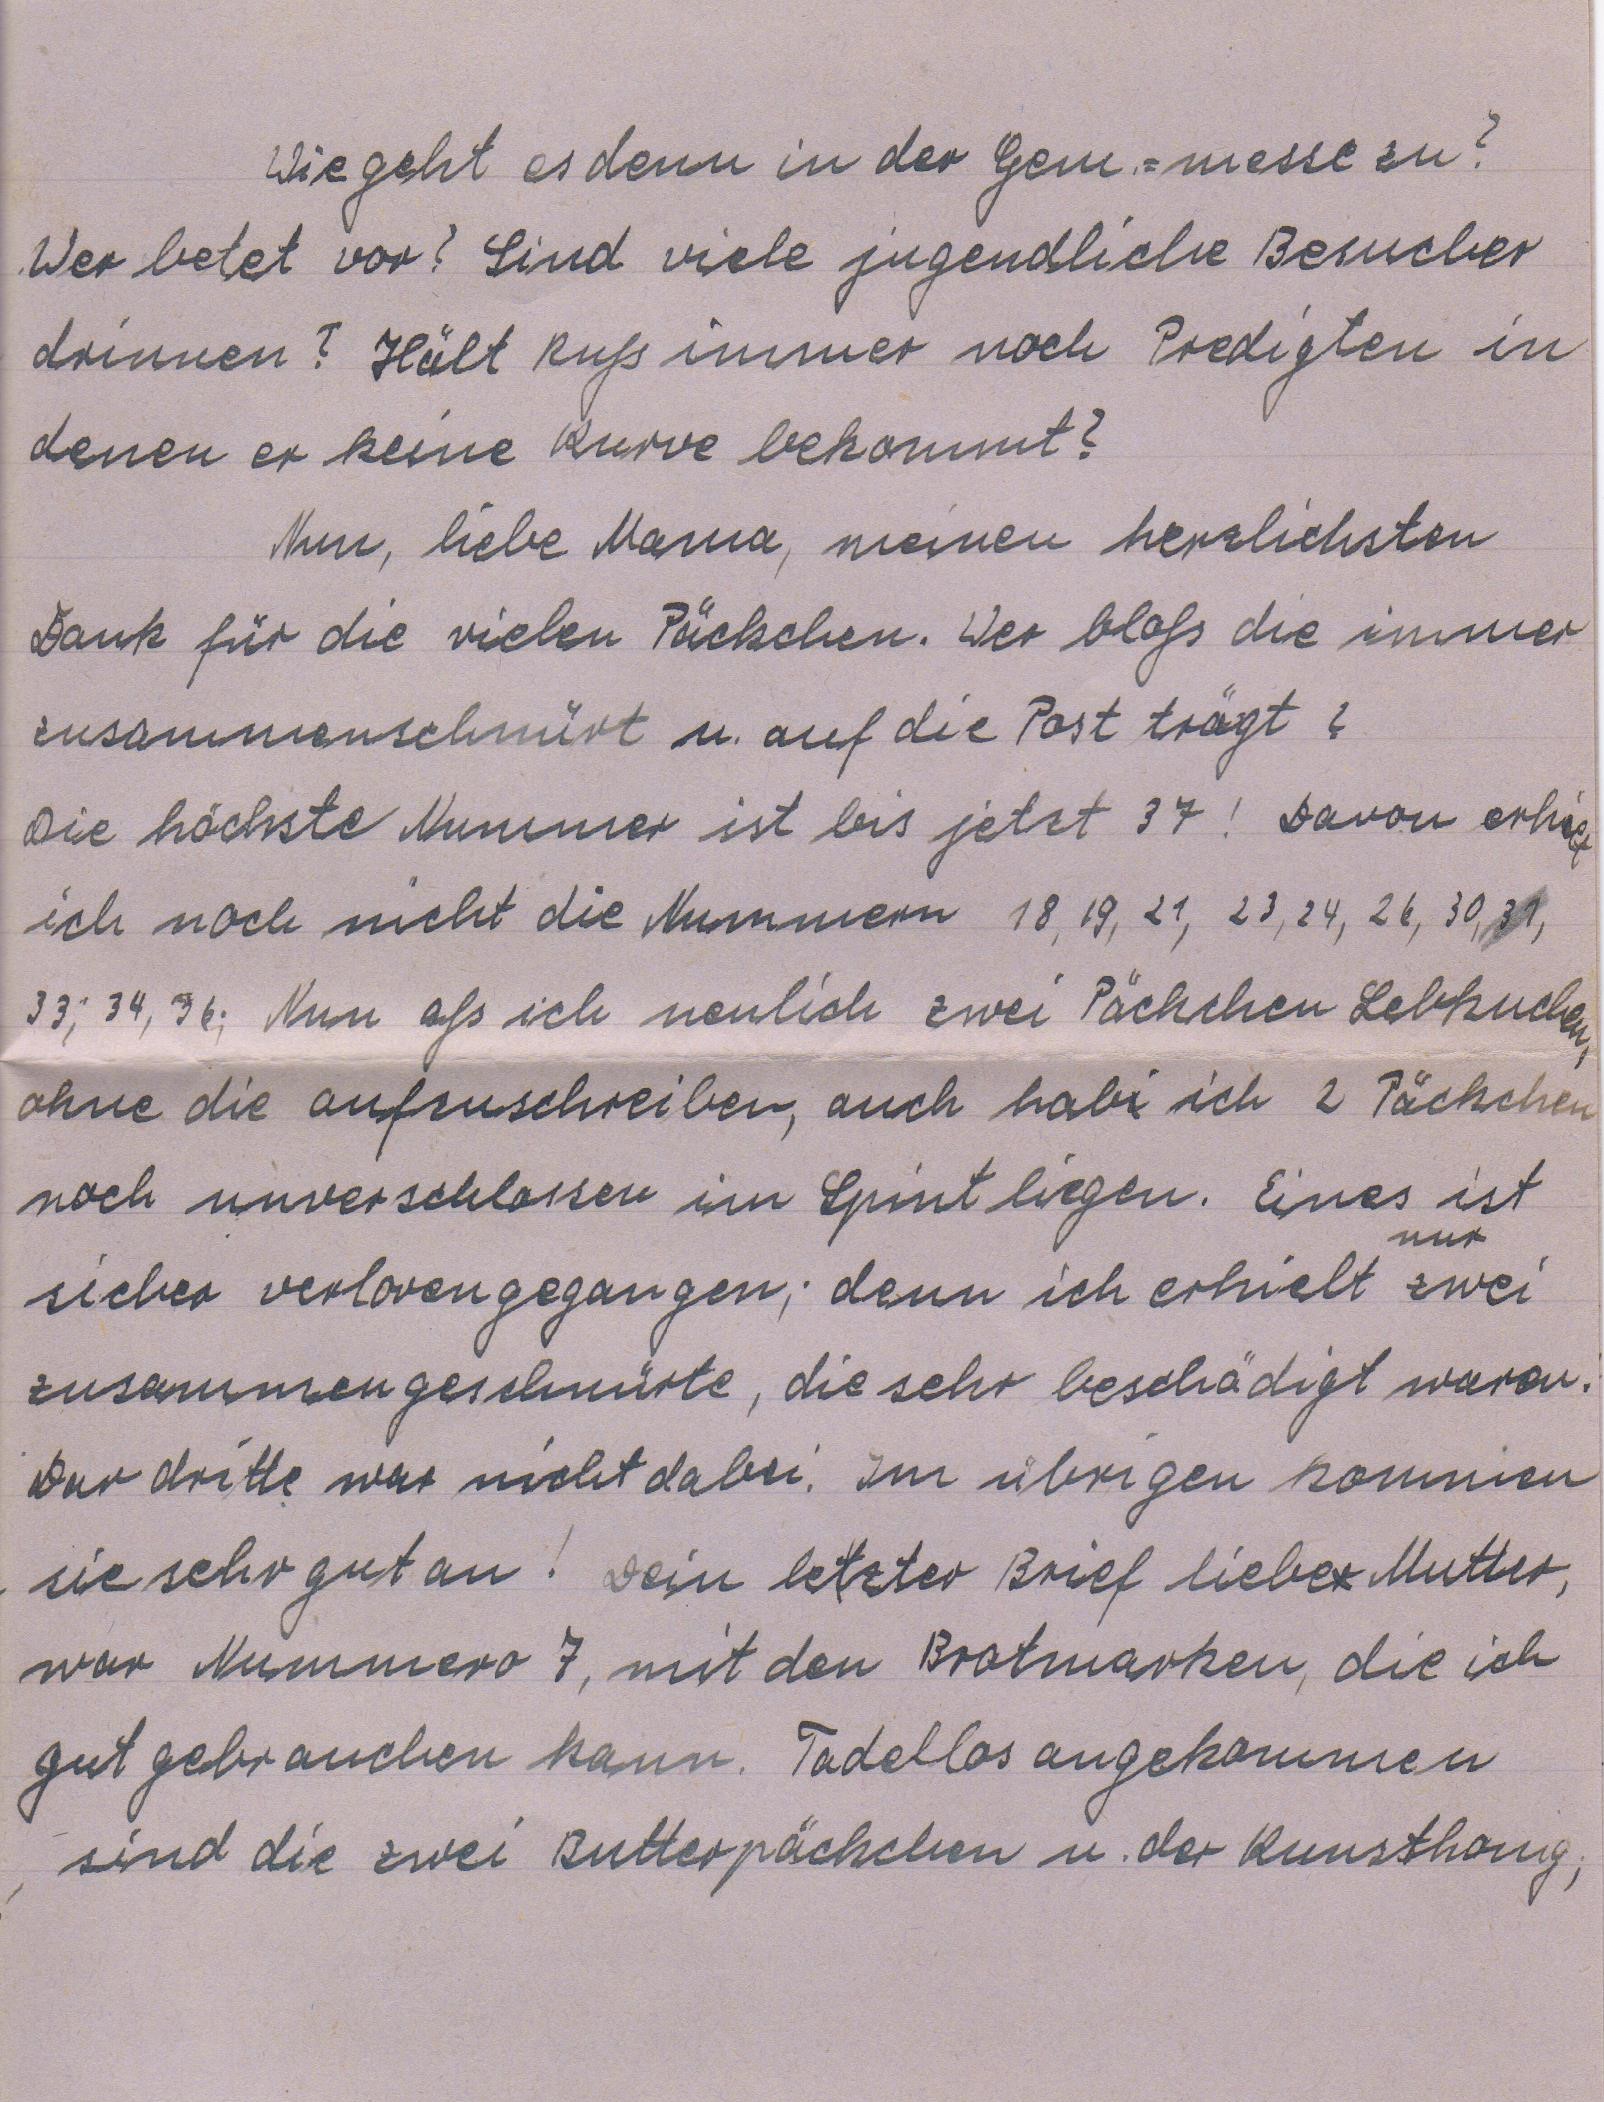 Wie geht es denn in der Gem.=messe zu?
Wer betet vor? Sind viele jugendliche Besucher
drinnen? Hält Kuß immer noch Predigten in
denen er keine Kurve bekommt?
Nun, liebe Mama, meinen herzlichsten
Dank für die vielen Päckchen. Wer bloß die immer
zusammenschnürt u. auf die Post trägt?
Die höchste Nummer ist bis jetzt 37! Davon erhielt
ich noch nicht die Nummern 18, 19, 21, 23, 24, 26, 30, 31,
33; 34, 36; Nun aß ich neulich zwei Päckchen Lebkuchen,
ohne die aufzuschreiben, auch habe ich 2 Päckchen
noch unverschlossen im Spint liegen. Eines ist
sicher verlorengegangen; denn ich erhielt nur zwei
zusammengeschnürte, die sehr beschädigt waren.
Das dritte war nicht dabei. Im übrigen kommen
sie sehr gut an! Dein letzter Brief liebe Mutter,
war Nummero 7, mit den Brotmarken, die ich
gut gebrauchen kann. Tadellos angekommen
sind die zwei Butterpäckchen u. der Kunsthonig;